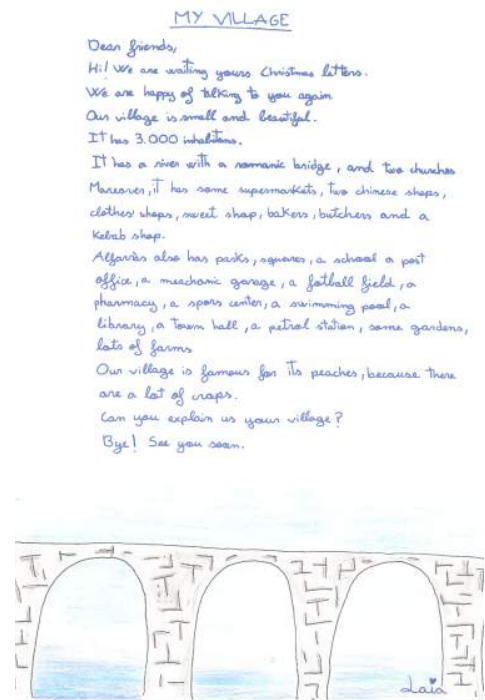 MY VILLAGE
Dear friends,
Hi! We are waiting yours Christmas letters.
We are happy of talking to you again
Our village is small and beautiful.
It has 3.000 inhabitans.
It has a river with a romanic bridge, and two churches
Moreover, it has some supermarkets, two chinese shops,
clothes' shops, sweet shop, bakers, butchers and a
Kebab shop.
Alfarràs also has parks, squares, a school a post
office, a meachanic garage, a fotball field, a
pharmacy, a spors center, a swimming pool, a
library, a town hall, a petrol station, some gardens,
lots of farms
Our village is famous for its peaches, because there
are a lot of craps.
Can you explain us your village?
Bye! See you soon.
Laia